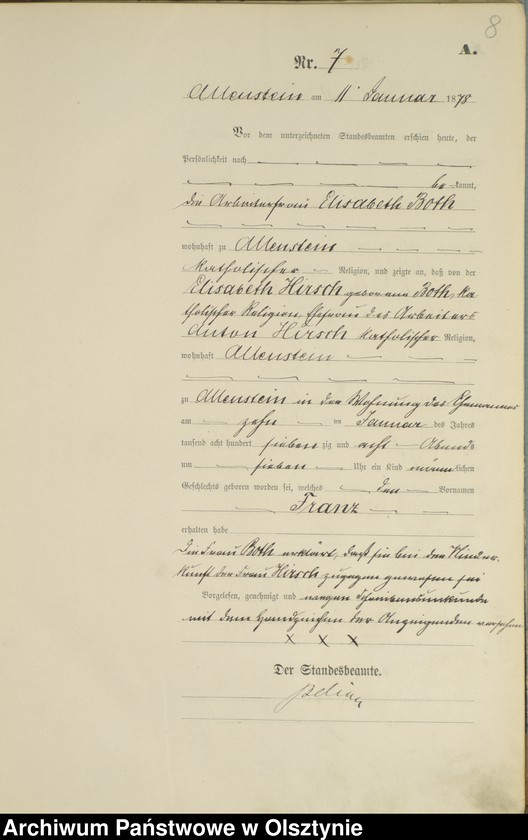 8
A.
Nr. 7
Allenstein am 11 Januar 1878
Vor dem unterzeichneten Standesbeamten erschien heute, der
Persönlichkeit nach
be kannt,
die Arbeiterfrau Elisabeth Both
wohnhaft zu Allenstein
katholischer Religion, und zeigte an, daß von der
Elisabeth Hirsch geborenen Both, ka
tholischer Religion, Ehefrau des Arbeiters
Anton Hirsch katholischer Religion,
wohnhaft Allenstein
zu Allenstein in der Wohnung des Ehemannes
am zehn ten Januar des Jahres
tausend acht hundert sieben zig und acht Abends
um sieben Uhr ein Kind männlichen
Geschlechts geboren worden sei, welches den Vornamen
Franz
erhalten habe
Die Frau Both erklärt, daß sie bei der Nieder
kunft der Frau Hirsch zugegen gewesen sei
Vorgelesen, genehmigt und wegen Schreibensunkunde
mit dem Handzeichen der Anzeigenden versehen
x x x
Der Standesbeamte.
Archiwum Państwowe w Olsztynie